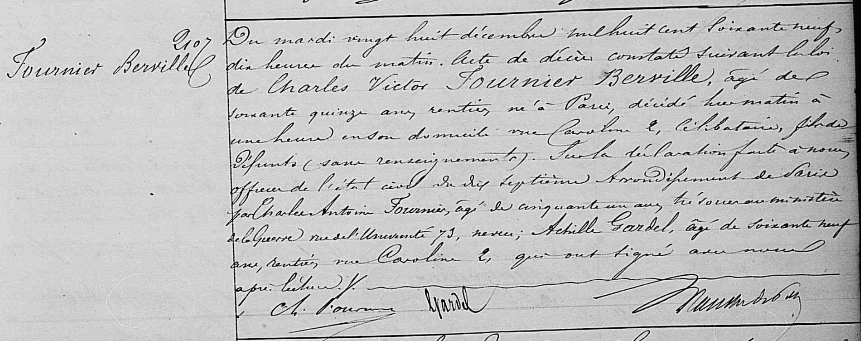 2107
Fournier Berville
Du mardi vingt huit décembre mil huit cent soixante neuf,
dix heures du matin. Acte de décès constaté suivant la loi
de Charles Victor Fournier Berville, âgé de
soixante quinze ans, rentier, né à Paris, décédé hier matin à
une heure en son domicile rue Caroline 2, célibataire, fils de
défunts (sans renseignements). Sur la déclaration faite à nous,
officier de l'état civil du dix septième arrondissement de Paris
par Charles Antoine Fournier, âgé de cinquante un ans, au ministère
de la Guerre rue de l'Université 73, neveu; Achille Gardel, âgé de soixante neuf
ans, rentier, rue Caroline 2, qui ont signé avec nous
après lecture ./.
Ch. Fournier Gardel